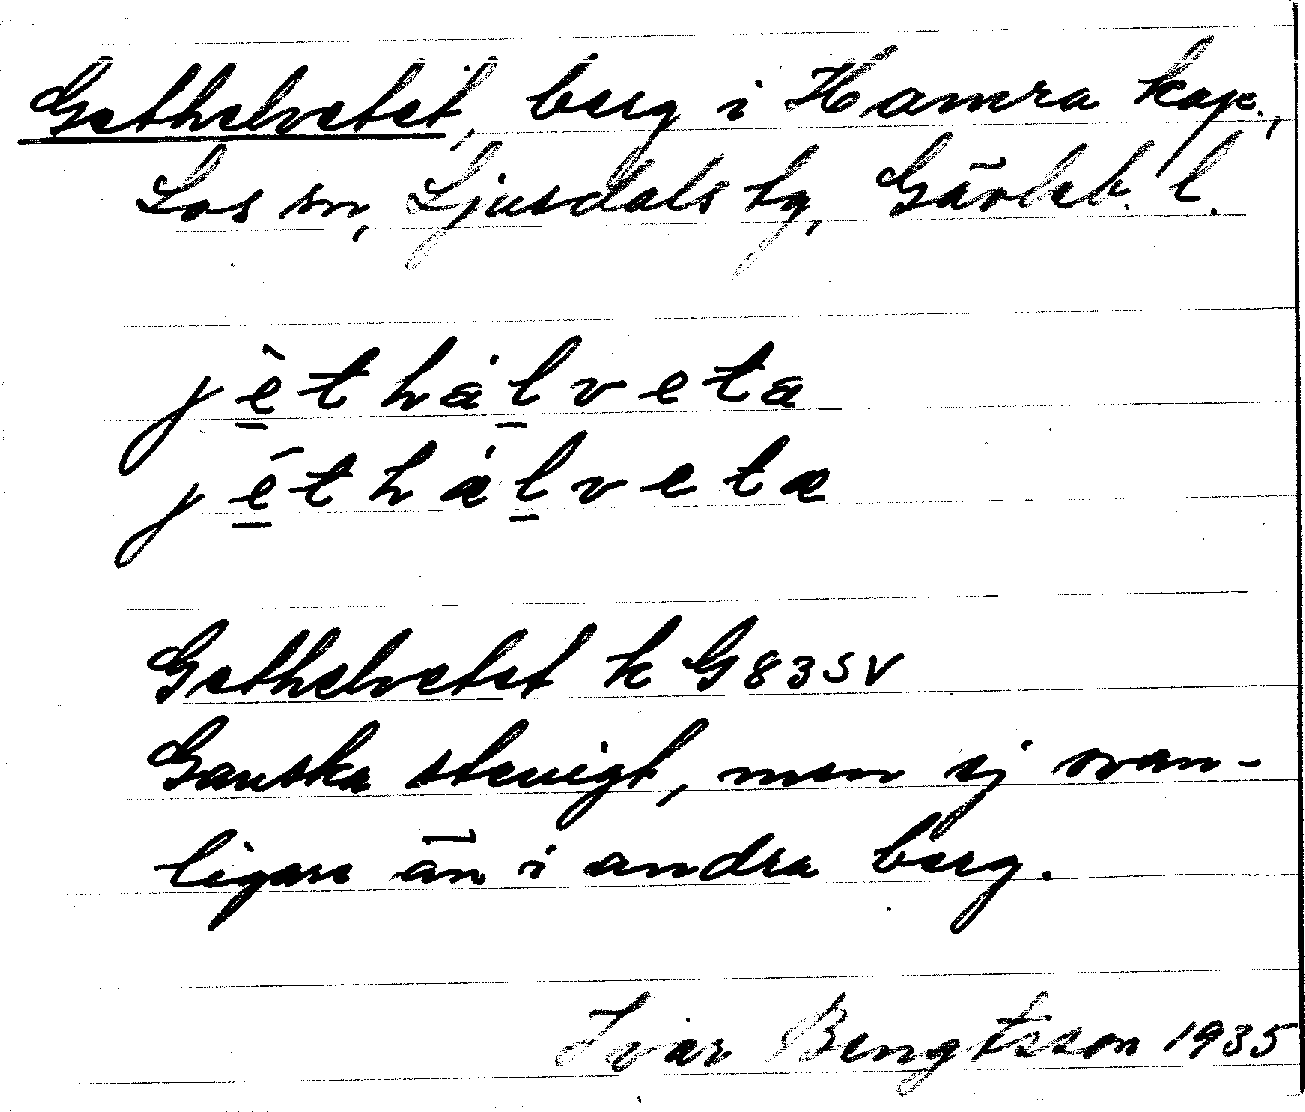 Gethelvetet, berg i Hamra kap.,
Los sn, Ljusdals tg, Gävleb. l.
jèthàlveta
jéthàlveta
Gethelvetet k G83SV
Ganska stenigt, men ej ovan-
ligare än i andra berg.
Ivar Bengtsson 1935